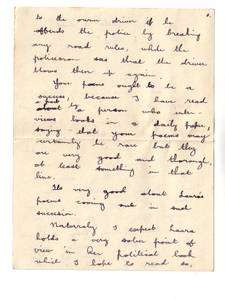 to the owner driver if he
offends the police by breaking
any road rules, while the
policeman says that the driver
blows them up again.
Your poems ought to be a
success, because I have read
about a person who inter-
views books in a daily paper
saying that your poems may
certainly be rare but they
are very good and thorough,
at least something in that
line.
Its very good about Laura's
poems coming out in such
succession.
Naturraly I expect Laura
holds a very sober point of
view in her political book,
which I hope to read so,